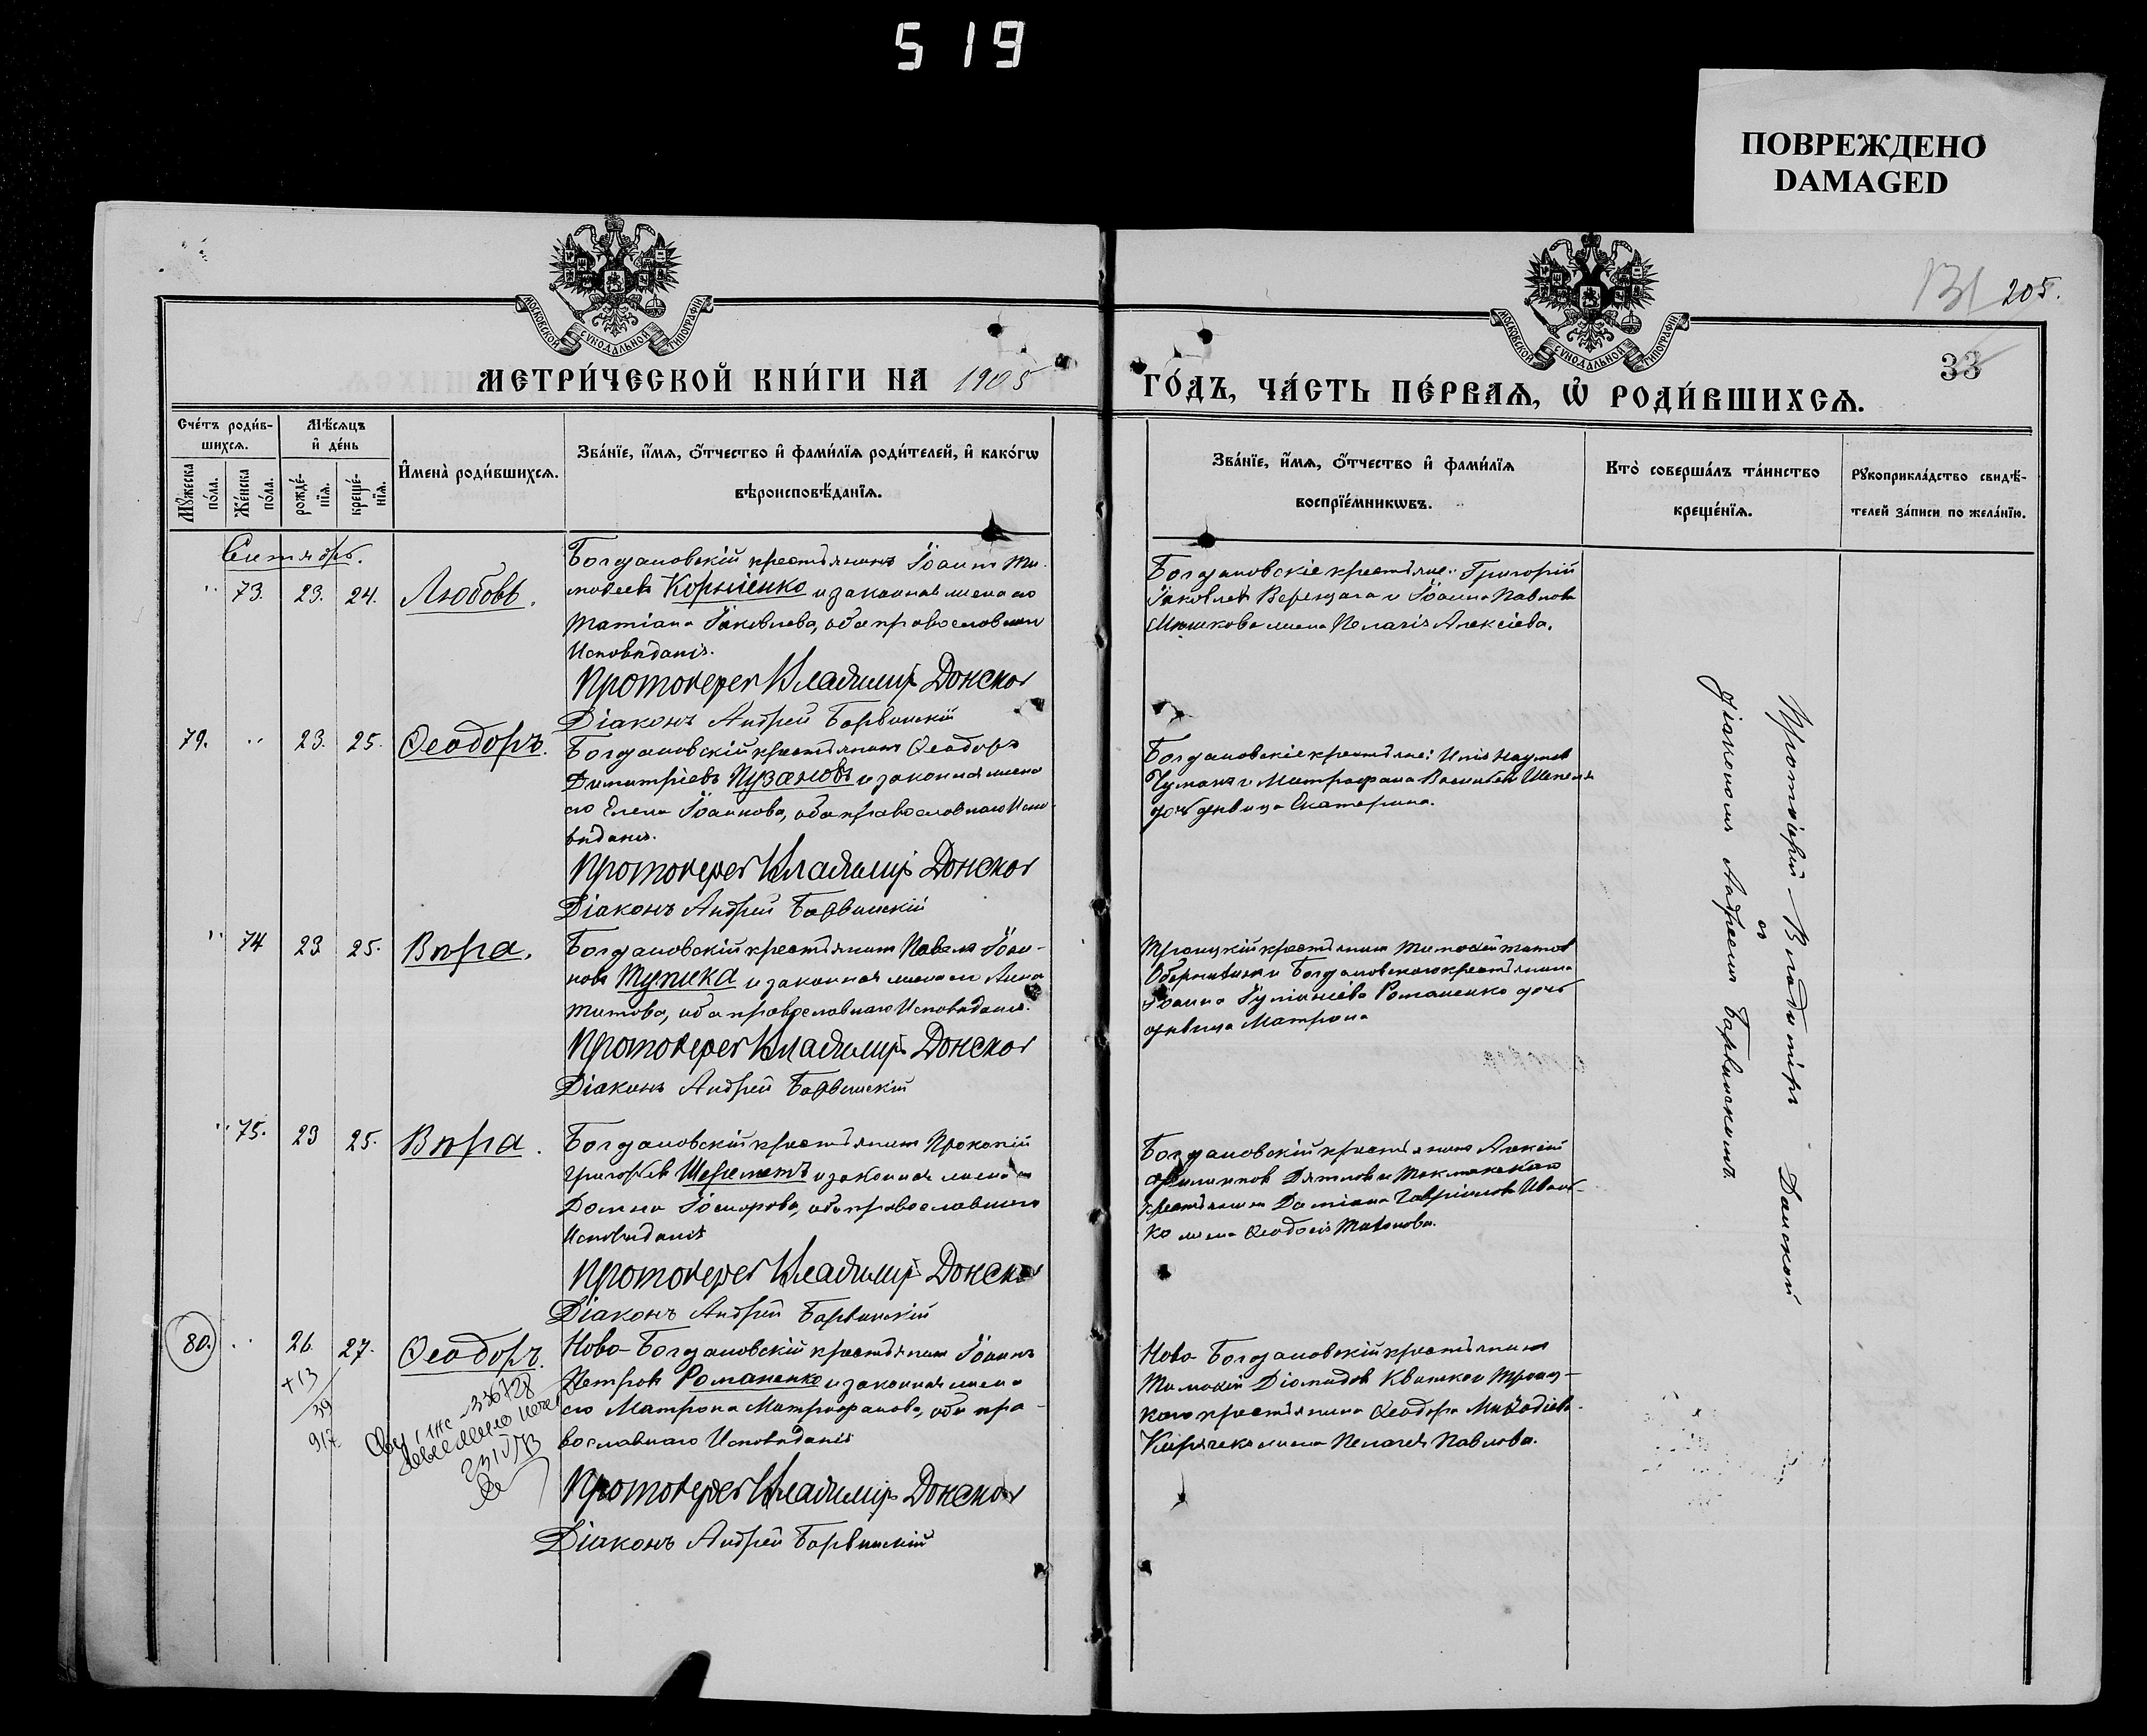 519
ПОВРЕЖДЕНО
DAMAGED
МОСКОВСКОЙ СѴНОДАЛЬНОЙ ТИПОГРАФІИ
МОСКОВСКОЙ СѴНОДАЛЬНОЙ ТИПОГРАФІИ
205.
33
МЕТРИ́ЧЕСКОЙ КНИ́ГИ НА 1905
ГО́ДЪ, ЧА́СТЬ ПЕ́РВАѦ, Ѡ҆ РОДИ́ВШИХСѦ.
Сче́тъ роди́в-
шихсѧ.
Мꙋ́жеска по́ла.
Же́нска по́ла.
Мѣ́сѧцъ
и҆ де́нь
рожде́-
нїѧ.
креще́-
нїѧ.
И҆мена̀ роди́вшихсѧ.
Зва́нїе, и҆́мѧ, ѻ҆́тчество и҆ фами́лїѧ роди́телей, и҆ како́гѡ
вѣроисповѣ́данїѧ.
Зва́нїе, и҆́мѧ, ѻ҆́тчество и҆ фами́лїѧ
воспрїе́мникѡвъ.
Кто̀ соверша́лъ та́инство
креще́нїѧ.
Рꙋкоприкла́дство свидѣ́-
телей за́писи по жела́нїю.
Сентябрь.
73. 23. 24. Любовь.
Богдановскій крестьянинъ Іоаннъ Ти-
мофеевъ Корніенко и законная жена его
Татіана Іаковлева, оба православнаго
Исповѣданія.
Протоіерей Владиміръ Донской
Діаконъ Андрей Барвинскій
Богдановскіе крестьяне: Григорій
Іаковлевъ Верещага и Іоанна Павлова
жена Пелагія Алексіева.
79. 23. 25. Ѳеодоръ.
Богдановскій крестьянинъ Ѳеодоръ
Димитріевъ Пузановъ и законная жена
его Елена Іоаннова, оба православнаго Испо-
вѣданія.
Протоіерей Владиміръ Донской
Діаконъ Андрей Барвинскій
Богдановскіе крестьяне: Илія Наумов
Чумакъ и Митрофана Васильева
дочь дѣвица Екатерина.
74 23 25. Вѣра.
Богдановскій крестьянинъ Павелъ Іоан-
новъ Тупика и законная жена его Анна
Титова, оба православнаго Исповѣданія.
Протоіерей Владиміръ Донской
Діаконъ Андрей Барвинскій
Троицкій крестьянинъ Тимофей Титов
и Богдановскаго крестьянина
Іоанна Романенко дочь
дѣвица Матрона
75. 23 25. Вѣра.
Богдановскій крестьянинъ Прокопій
Григорьевъ Шереметъ и законная жена его
Домна оба православнаго
Исповѣданія
Протоіерей Владиміръ Донской
Діаконъ Андрей Барвинскій
Богдановскій крестьянинъ Алексій
Филипповъ Дятловъ и Токмакскаго
крестьянина Даміана Гавріилова Иван-
ко жена Ѳеодосія
80. 26. 27. Ѳеодоръ.
Ново-Богдановскій крестьянинъ Іоаннъ
Петровъ Романенко и законная жена
его Матрона Митрофанова, оба пра-
вославнаго Исповѣданія
Протоіерей Владиміръ Донской
Діаконъ Андрей Барвинскій
Ново-Богдановскій крестьянинъ
Тимофей Діомидов Квитко и Троиц-
каго крестьянина Ѳеодора Меѳодіева
жена Пелагея Павлова.
+13
39
917
Протоіерей Владиміръ Донской
съ
діакономъ Андреемъ Барвинскимъ.